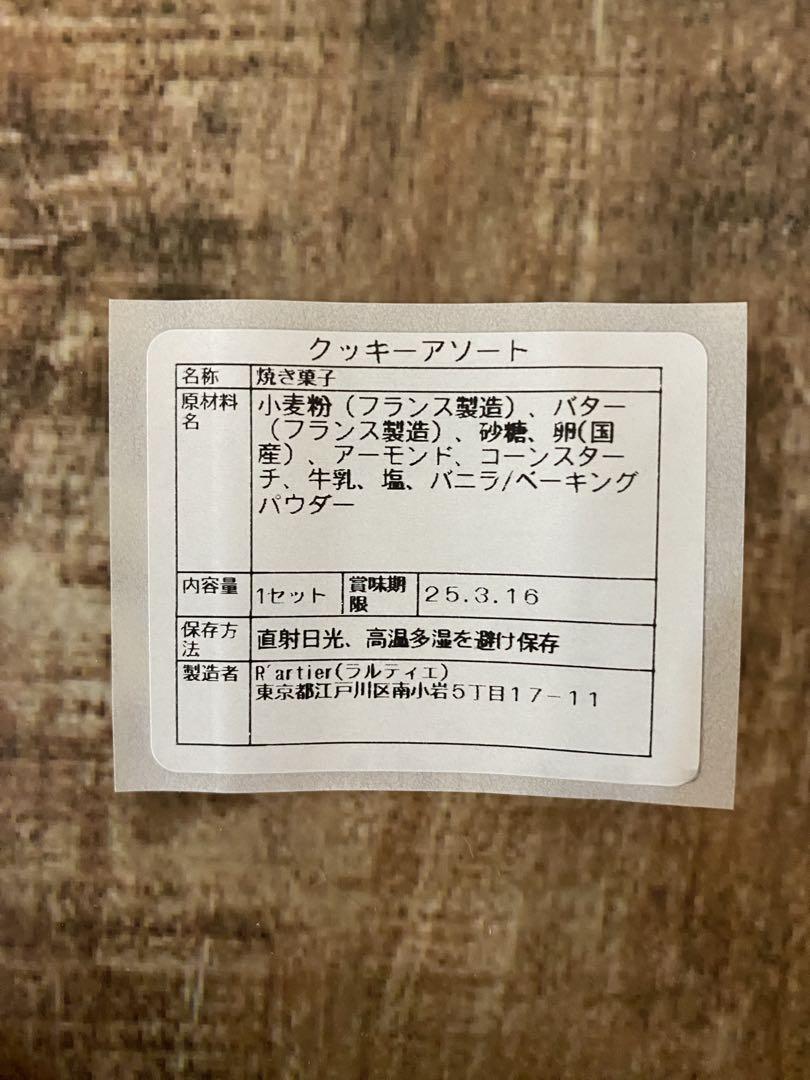 クッキーアソート
名称 焼き菓子
原材料名 小麦粉（フランス製造）、バター
（フランス製造）、砂糖、卵(国
産）、アーモンド、コーンスター
チ、牛乳、塩、バニラ/ベーキング
パウダー
内容量 1セット 賞味期限 25.3.16
保存方法 直射日光、高温多湿を避け保存
製造者 R'artier(ラルティエ)
東京都江戸川区南小岩5丁目17-11